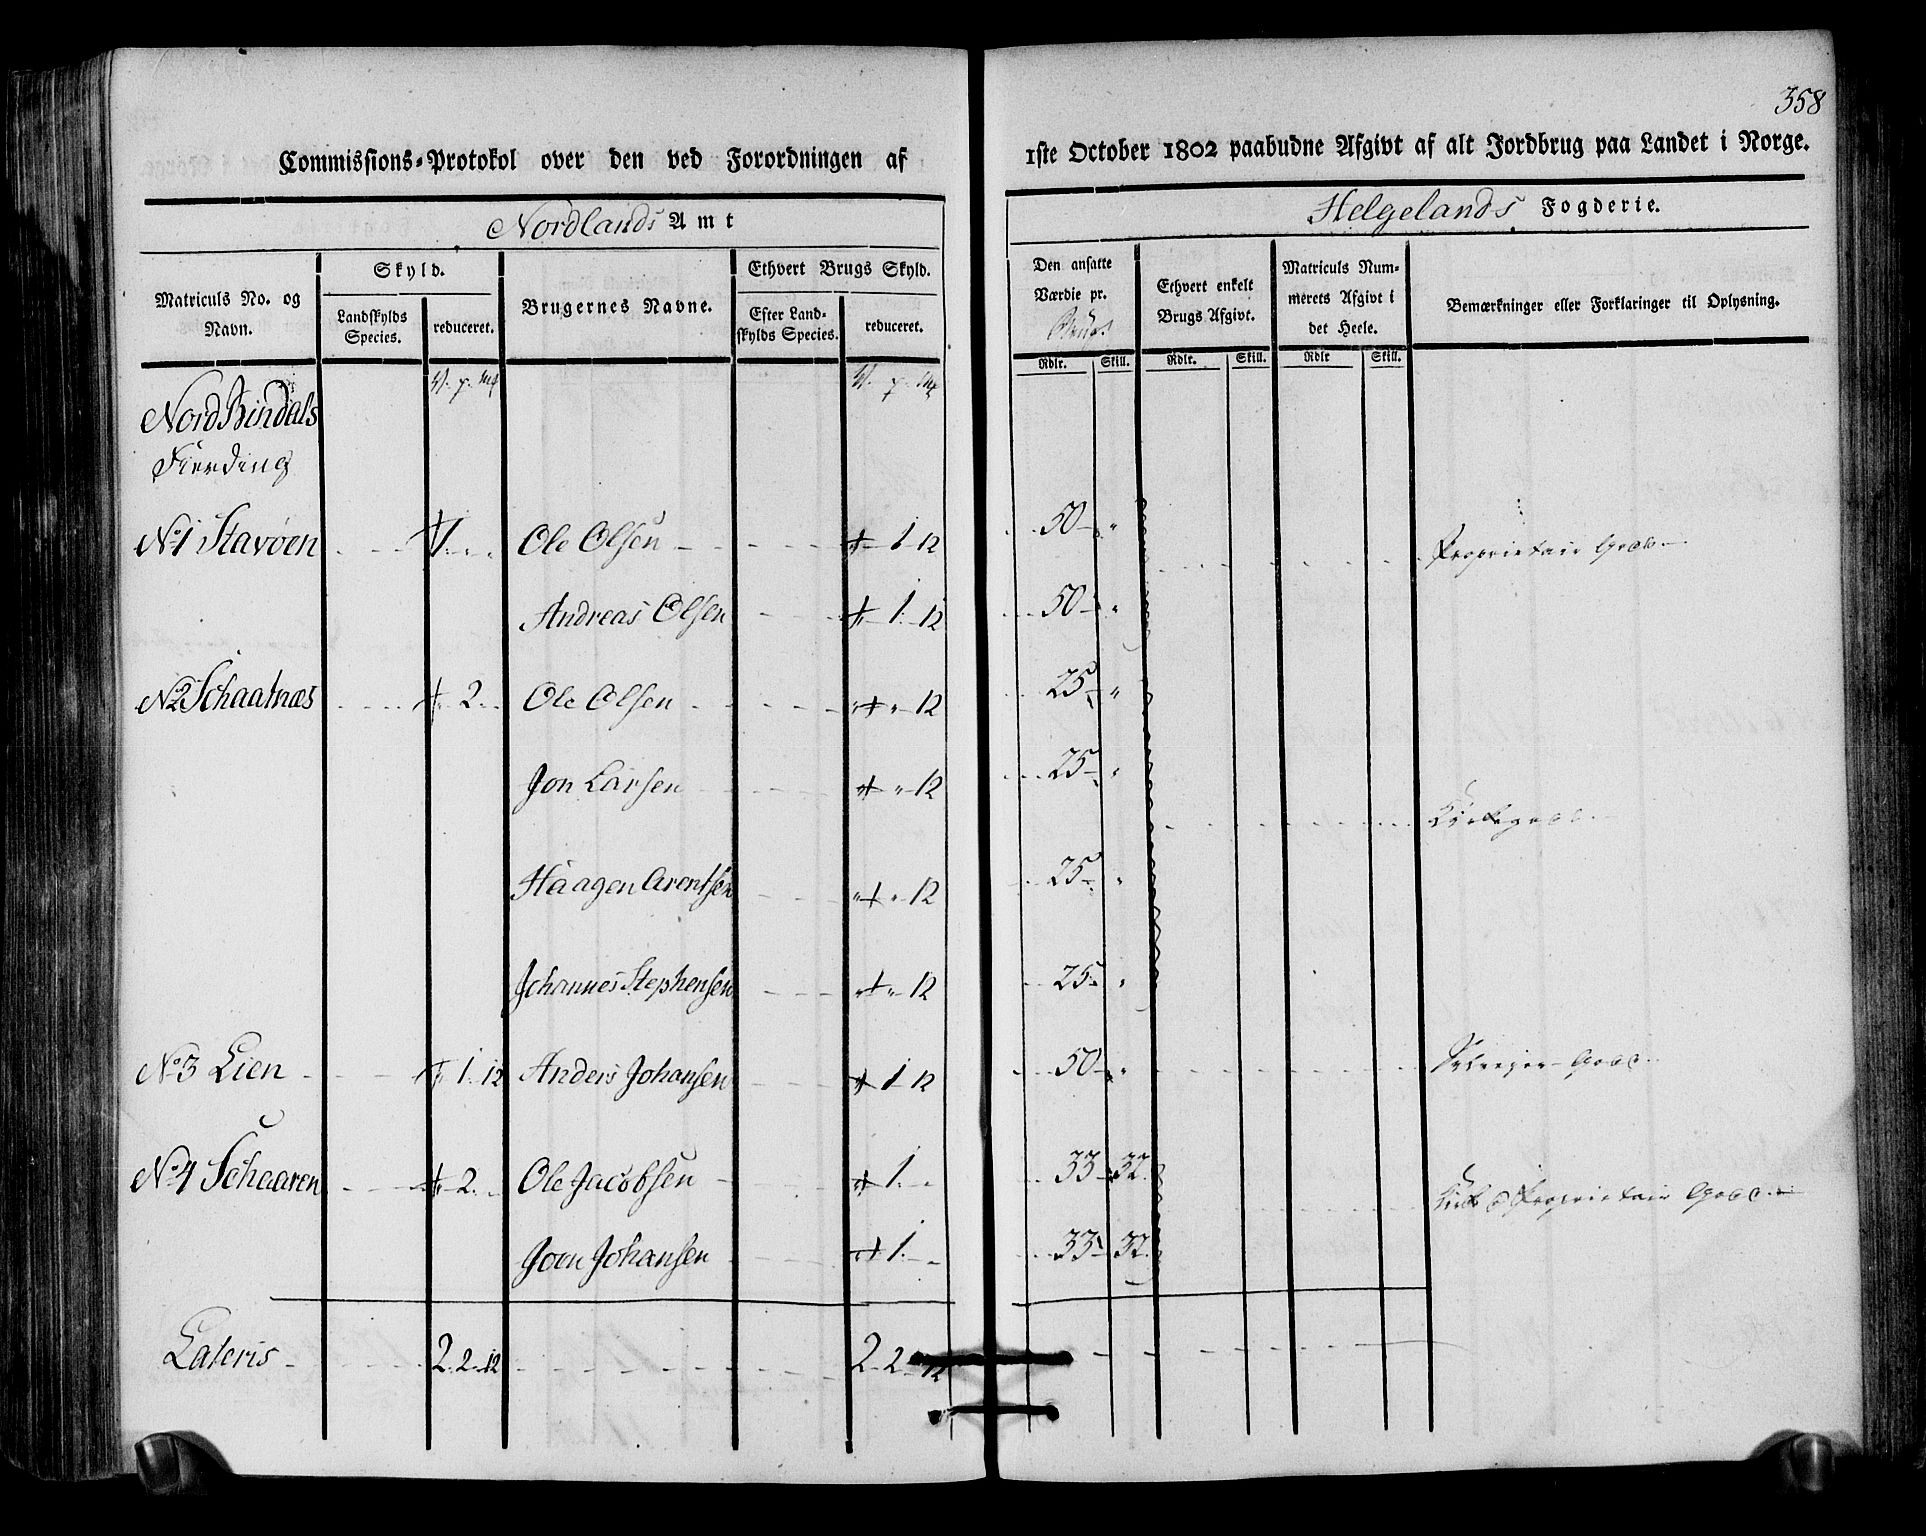 358
Commissions-Protokol over den ved Forordningen af 1ste October 1802 paabudne Afgivt af alt Jordbrug paa Landet i Norge.
Nordlands Amt Helgelands Fogderie.
Matriculs No. og Navn.
Skyld.
Landskylds Species.
reduceret.
Brugernes Navne.
Ethvert Brugs Skyld.
Efter Landskylds Species.
reduceret.
Den ansatte Værdie pr.
Rdlr. Skill.
Ethvert enkelt Brugs Afgivt.
Rdlr. Skill.
Matriculs Nummerets Afgivt i det Heele.
Rdlr Skill.
Bemærkninger eller Forklaringer til Oplysning.
V. p. V. p.
Nord Bindals
Fierding
No 1 Stavøen 1 Ole Olsen 1 12 50 " Proprietair Gods
Andreas Olsen 1 12 50 "
No 2 Schaatnæs 2 Ole Olsen " " 12 25 "
Jon Larsen " " 12 25 "
Kirkegods
Haagen Arentsen " " 12 25 "
Johannes Stephensen " " 12 25 "
No 3 Lien 1 12 Anders Johansen 1 12 50 " Selveyer Gods
No 4 Schaaren 2 Ole Jacobsen 1 33 32 Kirke & Proprietair Gods
Joen Johansen 1 33 32
Lateris 2 2 12 2 2 12